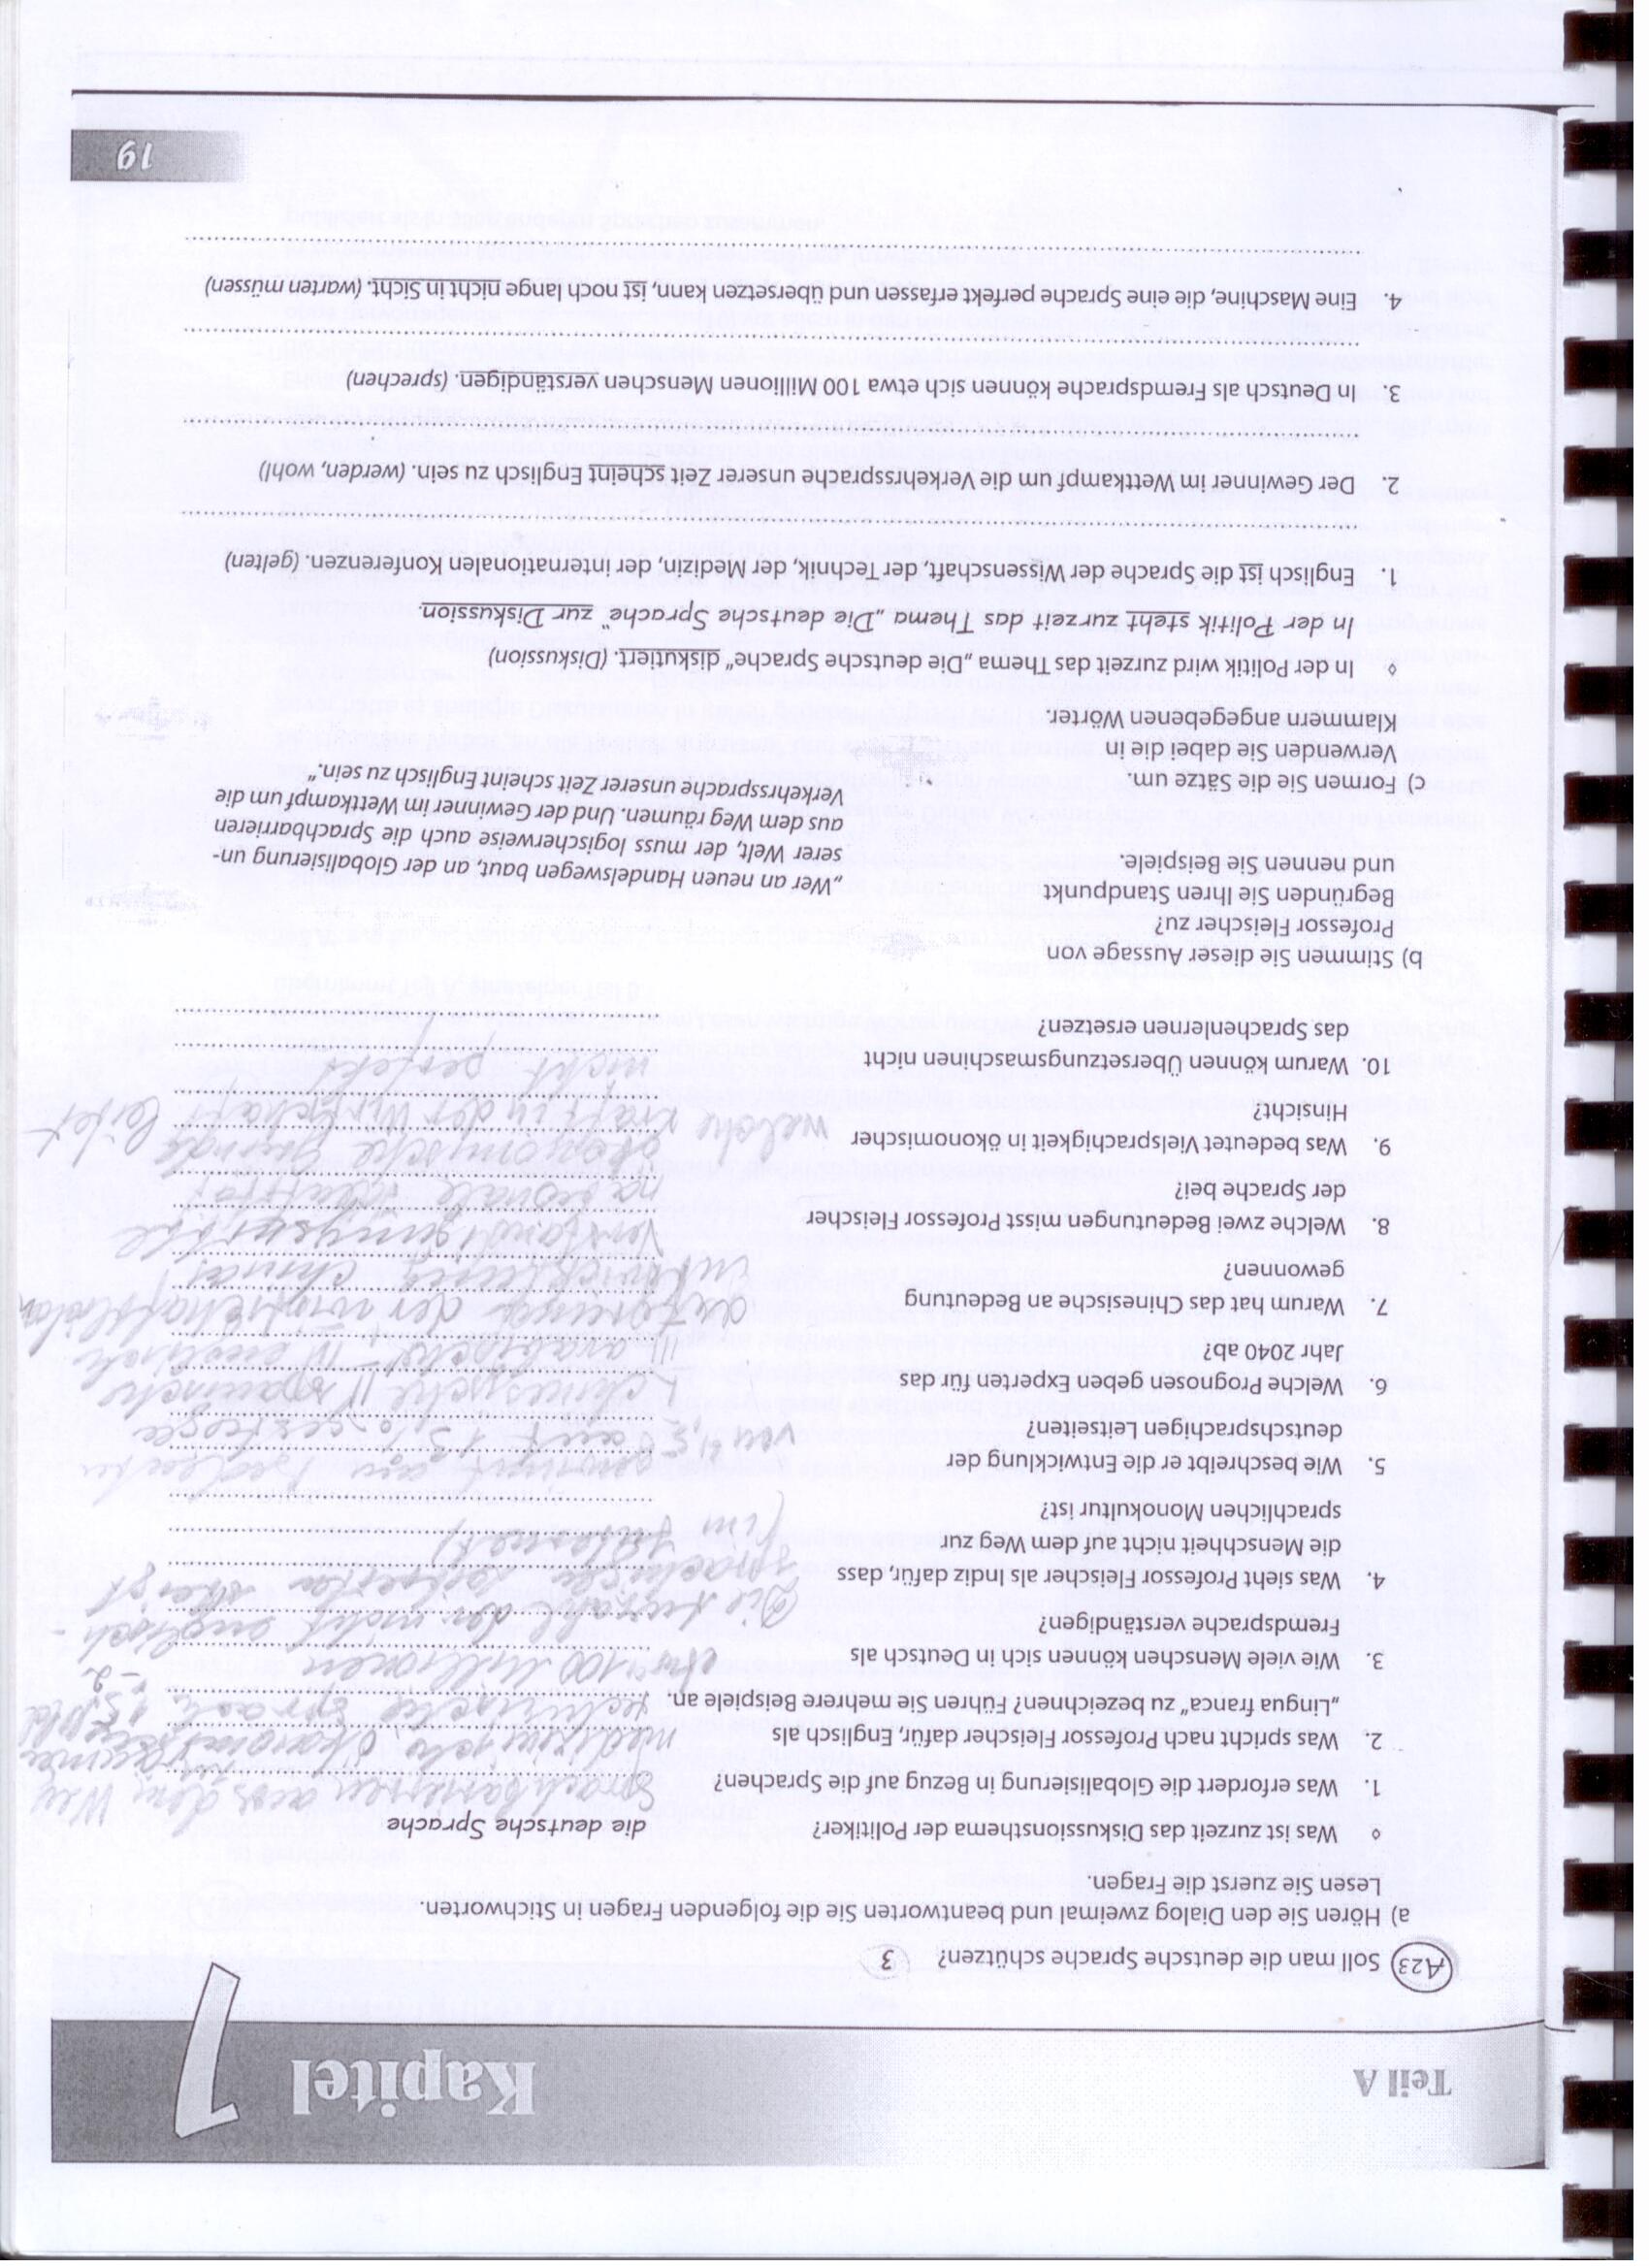 Teil A
Kapitel 1
A23 Soll man die deutsche Sprache schützen? 3
a) Hören Sie den Dialog zweimal und beantworten Sie die folgenden Fragen in Stichworten.
Lesen Sie zuerst die Fragen.
◊ Was ist zurzeit das Diskussionsthema der Politiker? die deutsche Sprache
1. Was erfordert die Globalisierung in Bezug auf die Sprachen? Sprachbarierren aus dem Weg
zu räumen
2. Was spricht nach Professor Fleischer dafür, Englisch als medizinische, ökonomische
„Lingua franca“ zu bezeichnen? Führen Sie mehrere Beispiele an. technische Sprach 1,5
- 2
3. Wie viele Menschen können sich in Deutsch als etwa 100 Millionen
Fremdsprache verständigen?
Die Anzahl der nicht englisch-
4. Was sieht Professor Fleischer als Indiz dafür, dass sprachigen Leitseiten steigt
die Menschheit nicht auf dem Weg zur (im Internet)
sprachlichen Monokultur ist?
5. Wie beschreibt er die Entwicklung der gewinnt an Bedeutu
deutschsprachigen Leitseiten? von 4,5 auf 13% gestiegen
6. Welche Prognosen geben Experten für das I chinesische II spanische
Jahr 2040 ab? III arabische IV englisch
7. Warum hat das Chinesische an Bedeutung aufgrund der wirtschaftlichen
gewonnen? Entwicklung Chinas
8. Welche zwei Bedeutungen misst Professor Fleischer
der Sprache bei? nationale Identität
9. Was bedeutet Vielsprachigkeit in ökonomischer ökonomische Gründe
Hinsicht? welche Kraft in der Wirtschaft leitet
10. Warum können Übersetzungsmaschinen nicht nicht perfekt
das Sprachenlernen ersetzen?
b) Stimmen Sie dieser Aussage von
Professor Fleischer zu?
Begründen Sie Ihren Standpunkt
und nennen Sie Beispiele.
„Wer an neuen Handelswegen baut, an der Globalisierung un-
serer Welt, der muss logischerweise auch die Sprachbarrieren
aus dem Weg räumen. Und der Gewinner im Wettkampf um die
Verkehrssprache unserer Zeit scheint Englisch zu sein.“
c) Formen Sie die Sätze um.
Verwenden Sie dabei die in
Klammern angegebenen Wörter.
◊ In der Politik wird zurzeit das Thema „Die deutsche Sprache“ diskutiert. (Diskussion)
In der Politik steht zurzeit das Thema „Die deutsche Sprache“ zur Diskussion.
1. Englisch ist die Sprache der Wissenschaft, der Technik, der Medizin, der internationalen Konferenzen. (gelten)
2. Der Gewinner im Wettkampf um die Verkehrssprache unserer Zeit scheint Englisch zu sein. (werden, wohl)
3. In Deutsch als Fremdsprache können sich etwa 100 Millionen Menschen verständigen. (sprechen)
4. Eine Maschine, die eine Sprache perfekt erfassen und übersetzen kann, ist noch lange nicht in Sicht. (warten müssen)
19